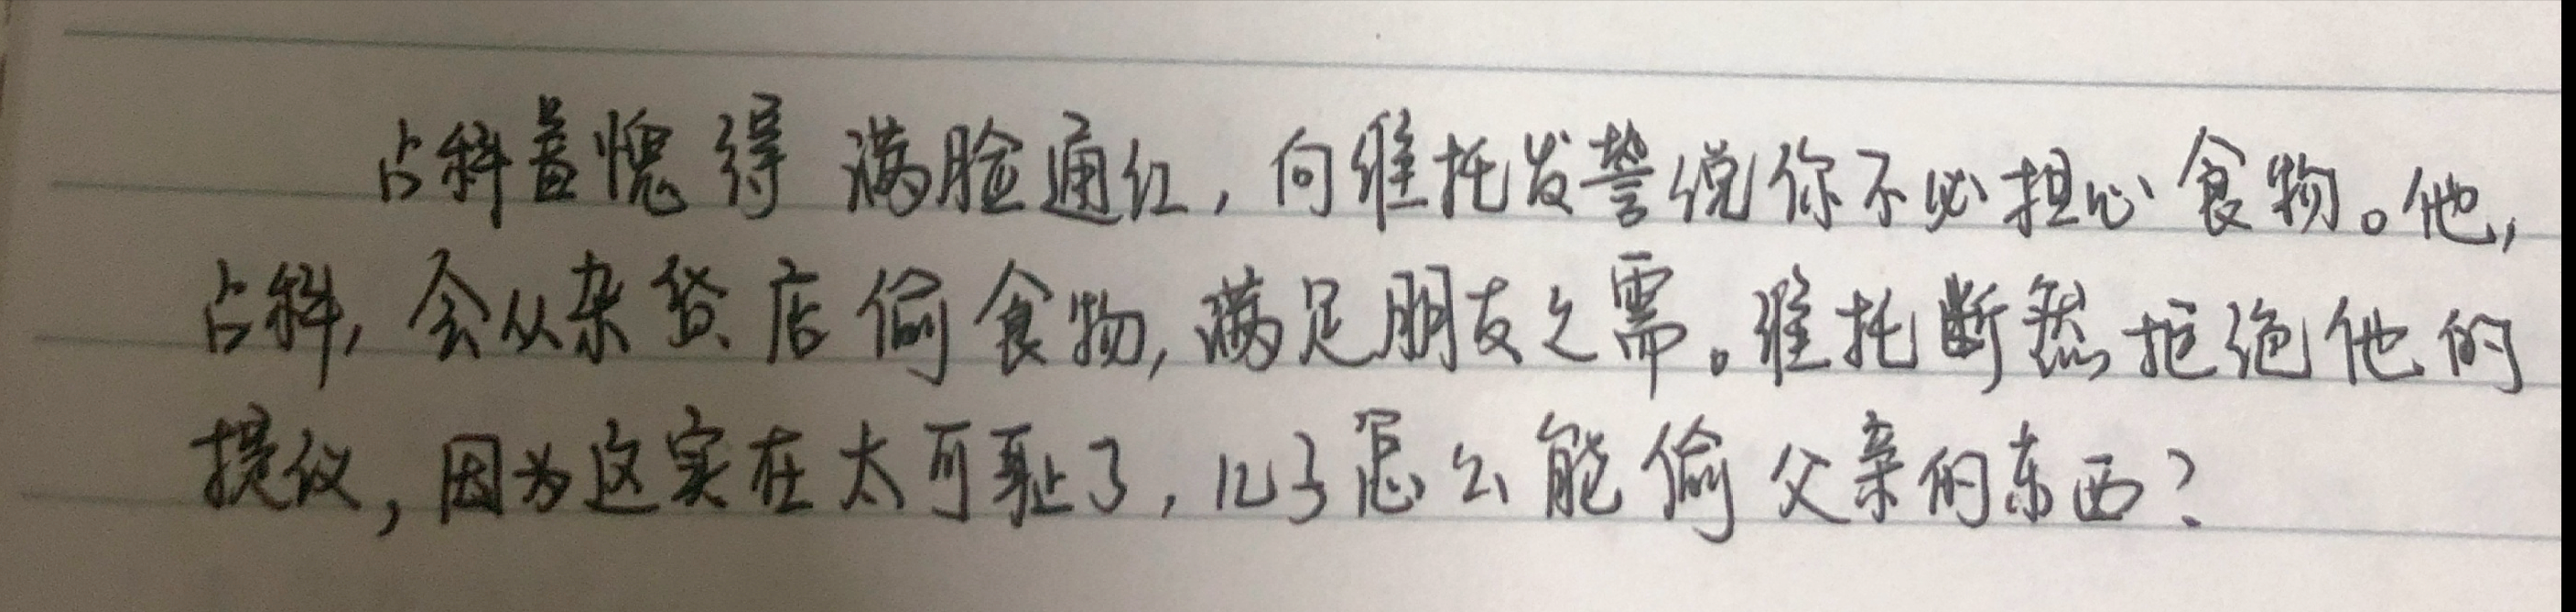 占科羞愧得满脸通红，向维托发誓说你不必担心食物。他，
占科，会从杂货店偷食物，满足朋友之需。维托断然拒绝他的
提议，因为这实在太可耻了，儿子怎么能偷父亲的东西？